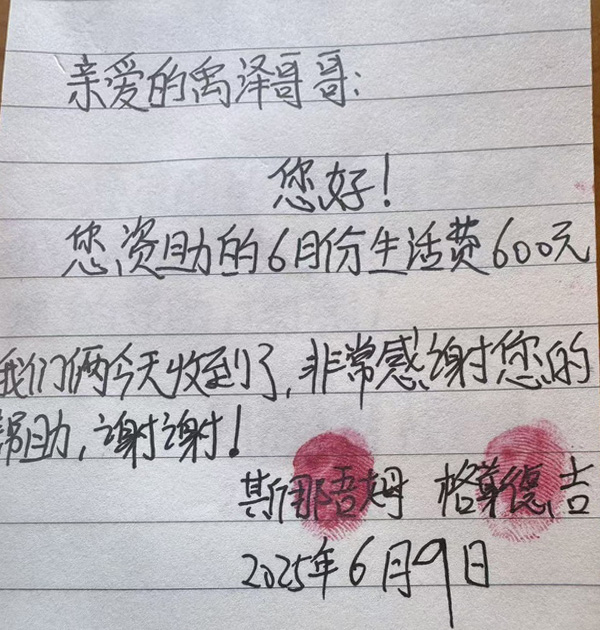 亲爱的禹泽哥哥:
您好!
您资助的6月份生活费600元
我们俩今天收到了,非常感谢您的
帮助,谢谢!
斯那吾姆 格茸德吉
2025年6月9日